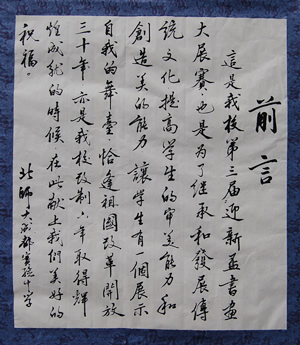 前言
這是我校第三屆迎新盃書畫
大展賽也是为了继承和發展傳
統文化提高學生的审美能力和
創造美的能力讓學生有一個展示
自我的舞臺恰逢祖國改革開放
三十年亦是我校改制六年取得輝
煌成就的時候在此献上我們美好的
祝福。
北師大成都實驗中学